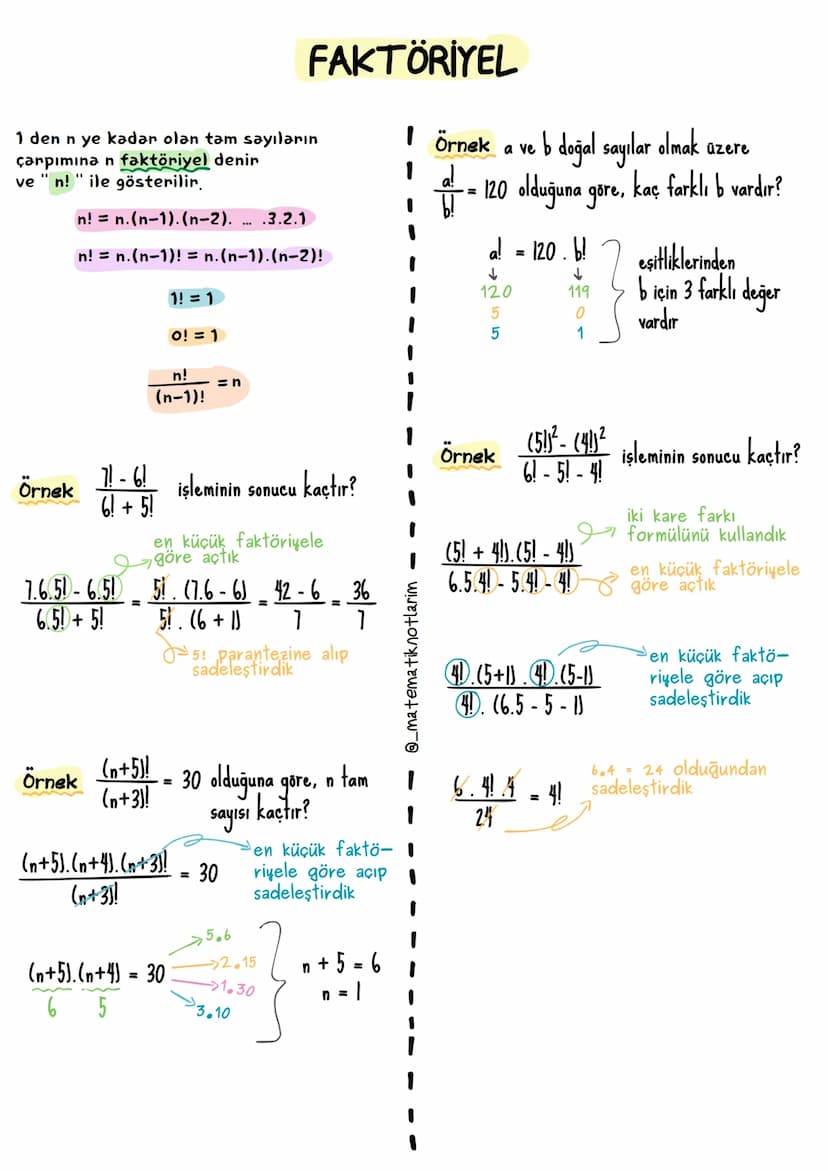 FAKTÖRİYEL
1 den n ye kadar olan tam sayıların
çarpımına n faktöriyel denir
ve "n!" ile gösterilir.
n! = n.(n-1).(n-2). ... .3.2.1
n! = n.(n-1)! = n.(n-1).(n-2)!
1! = 1
0! = 1
n!/(n-1)! = n
Örnek (7! - 6!)/(6! + 5!) işleminin sonucu kaçtır?
en küçük faktöriyele
göre açtık
(7.6.5! - 6.5!)/(6.5! + 5!) = (5! . (7.6 - 6))/(5! . (6 + 1)) = (42 - 6)/7 = 36/7
5! parantezine alıp
sadeleştirdik
Örnek (n+5)!/(n+3)! = 30 olduğuna göre, n tam
sayısı kaçtır?
(n+5).(n+4).(n+3)!/(n+3)! = 30
en küçük faktö-
riyele göre açıp
sadeleştirdik
(n+5).(n+4) = 30
6 5
5.6
2.15
1.30
3.10
n + 5 = 6
n = 1
@_matematiknotlarim
Örnek a ve b doğal sayılar olmak üzere
a!/b! = 120 olduğuna göre, kaç farklı b vardır?
a! = 120 . b!
↓ ↓
120 119
5 0
5 1
eşitliklerinden
b için 3 farklı değer
vardır
Örnek ((5!)² - (4!)²)/(6! - 5! - 4!) işleminin sonucu kaçtır?
iki kare farkı
formülünü kullandık
((5! + 4!).(5! - 4!))/(6.5.4! - 5.4! - 4!)
en küçük faktöriyele
göre açtık
(4!.(5+1) . 4!.(5-1))/(4! . (6.5 - 5 - 1))
en küçük faktö-
riyele göre açıp
sadeleştirdik
(6 . 4! . 4)/24 = 4!
6.4 = 24 olduğundan
sadeleştirdik